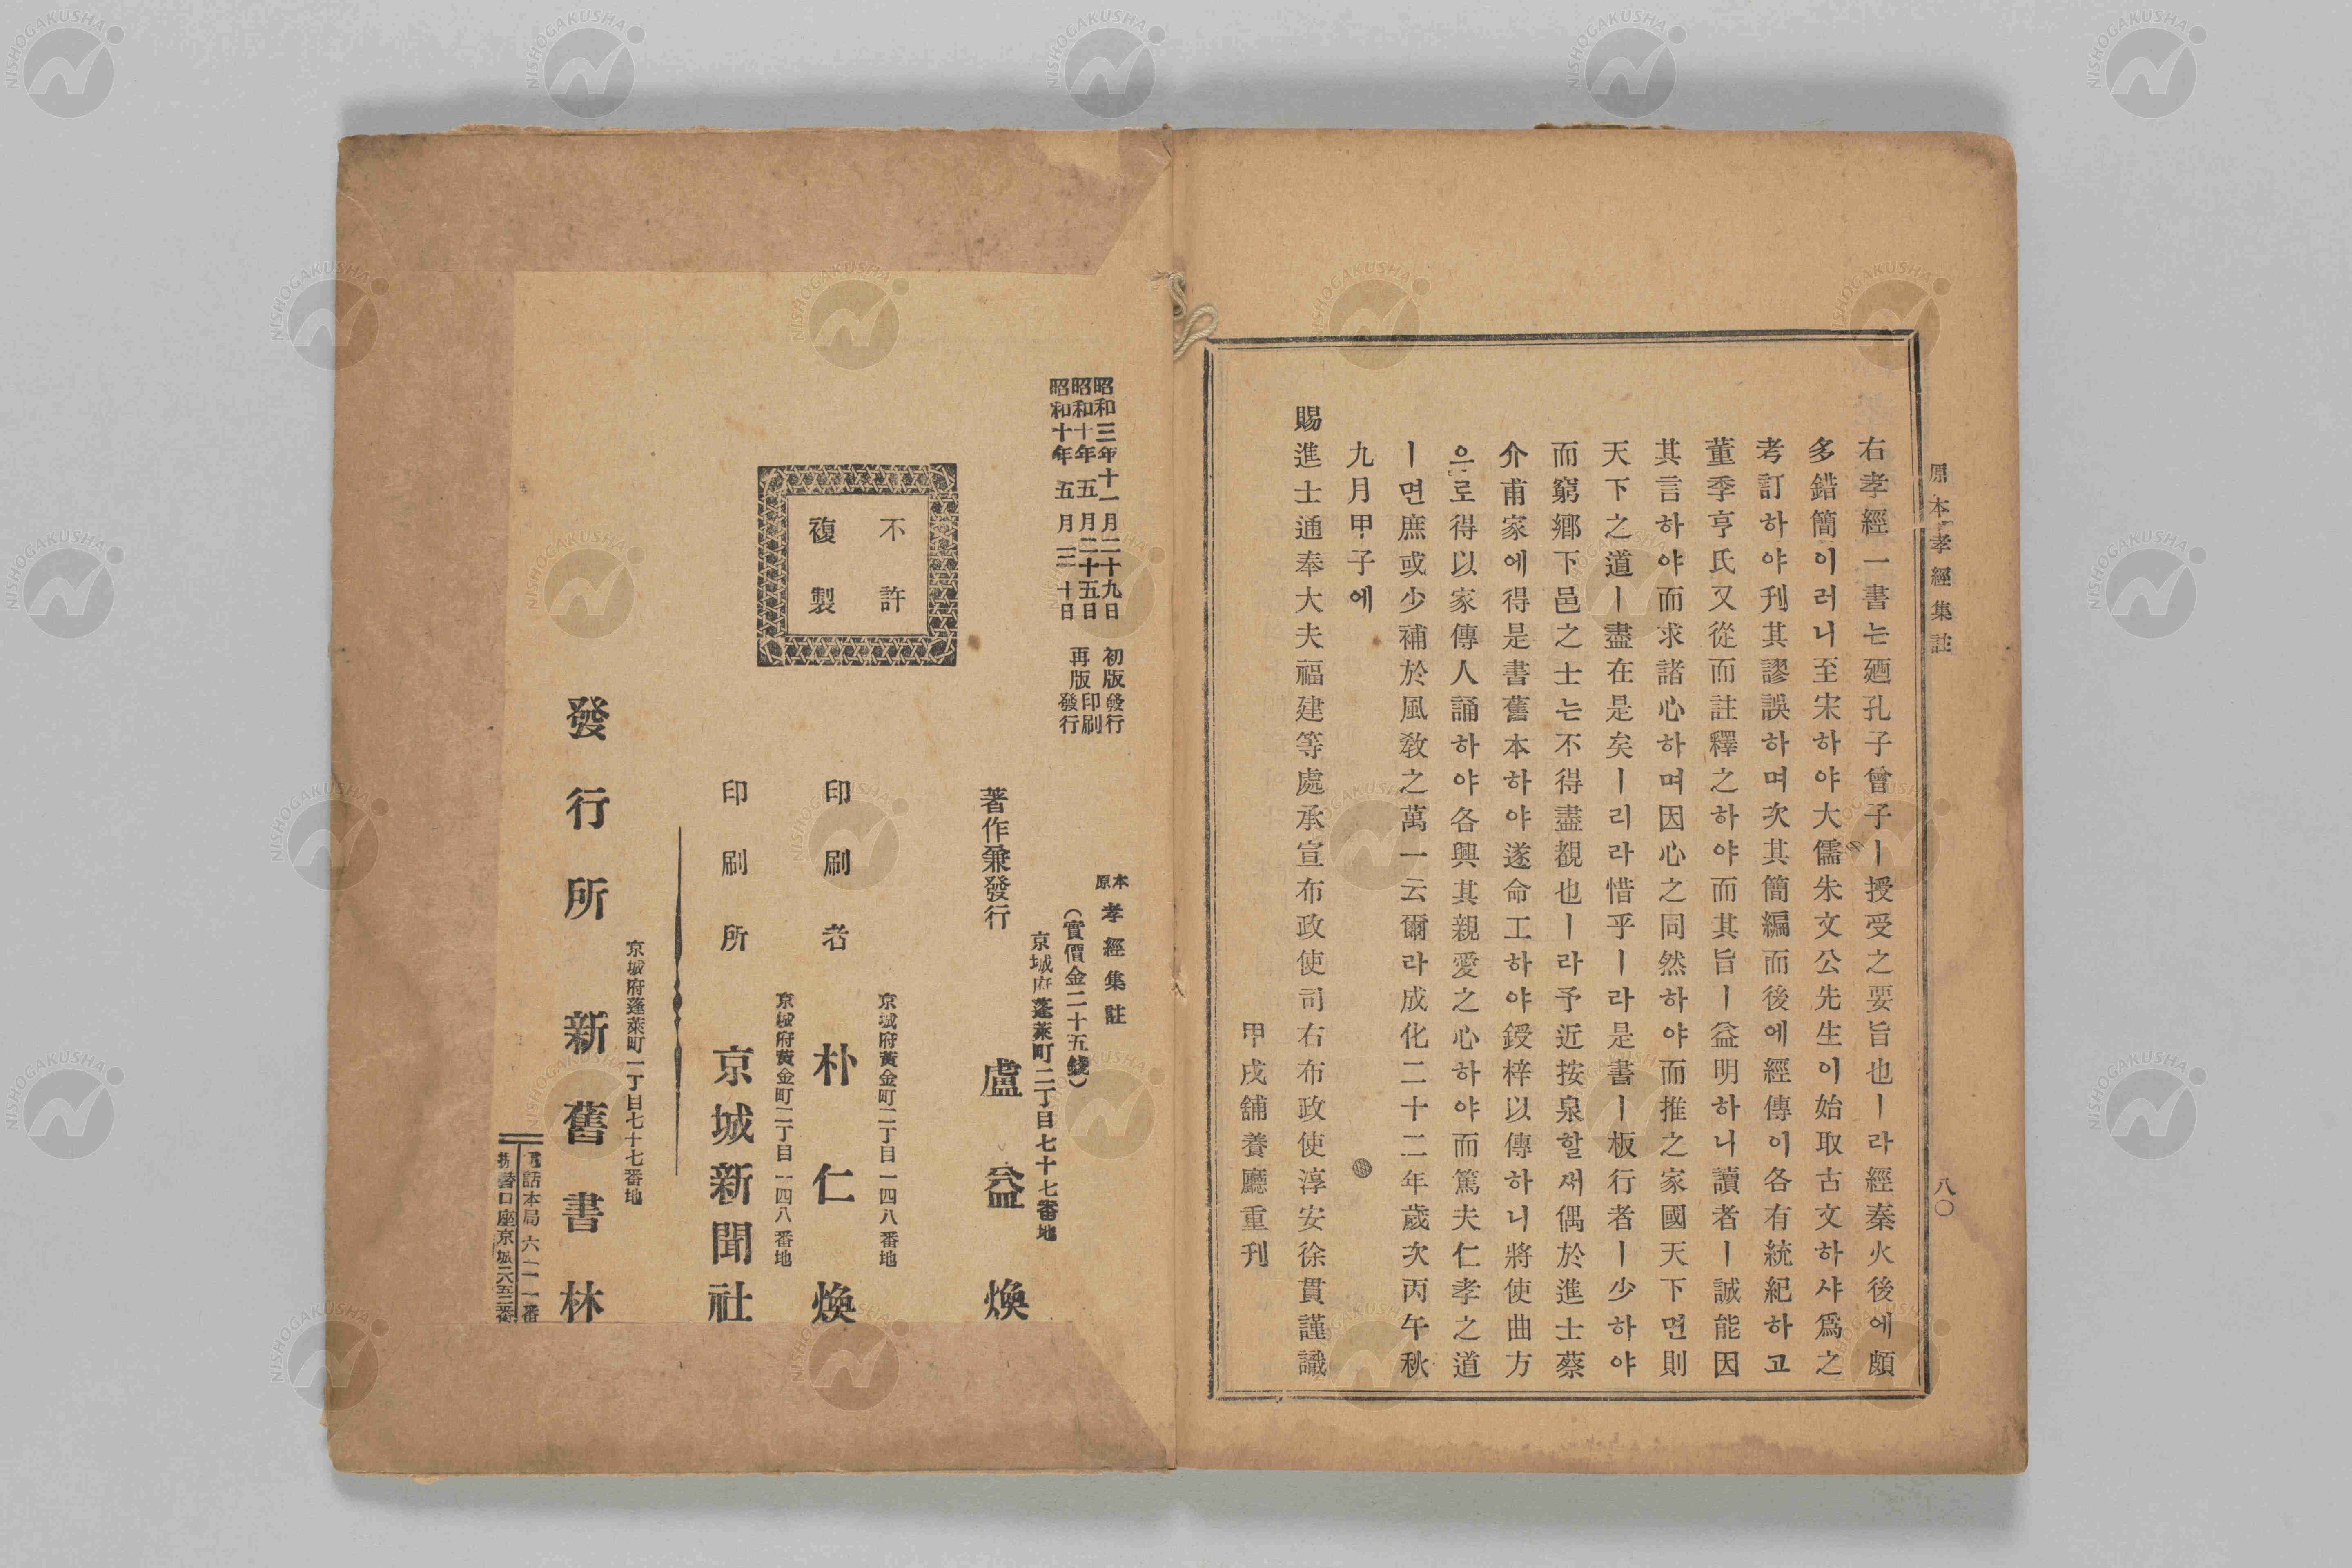 原本孝經集註
八〇
右孝經一書는廼孔子曾子ㅣ授受之要旨也ㅣ라經秦火後에頗
多錯簡이러니至宋하야大儒朱文公先生이始取古文하샤爲之
考訂하야刊其謬誤하며次其簡編而後에經傳이各有統紀하고
董季亨氏又從而註釋之하야而其旨ㅣ益明하니讀者ㅣ誠能因
其言하야而求諸心하며因心之同然하야而推之家國天下면則
天下之道ㅣ盡在是矣ㅣ리라惜乎ㅣ라是書ㅣ板行者ㅣ少하야
而窮鄕下邑之士는不得盡觀也ㅣ라予近按泉할새偶於進士蔡
介甫家에得是書舊本하야遂命工하야鋟梓以傳하니將使曲方
으로得以家傳人誦하야各興其親愛之心하야而篤夫仁孝之道
ㅣ면庶或少補於風敎之萬一云爾라成化二十二年歲次丙午秋
九月甲子에
賜進士通奉大夫福建等處承宣布政使司右布政使淳安徐貫謹識
甲戌舖養廳重刊
昭和三年十一月二十九日 初版發行
昭和十年五月二十五日 再版印刷
昭和十年五月三十日 發行
原本 孝經集註
(實價金二十五錢)
京城府蓬萊町二丁目七十七番地
著作兼發行 盧益煥
不許
複製
京城府黃金町二丁目一四八番地
印刷者 朴仁煥
京城府黃金町二丁目一四八番地
印刷所 京城新聞社
京城府蓬萊町二丁目七十七番地
發行所 新舊書林
電話本局六二一一番
振替口座京城六五三番
NISHOGAKUSHA